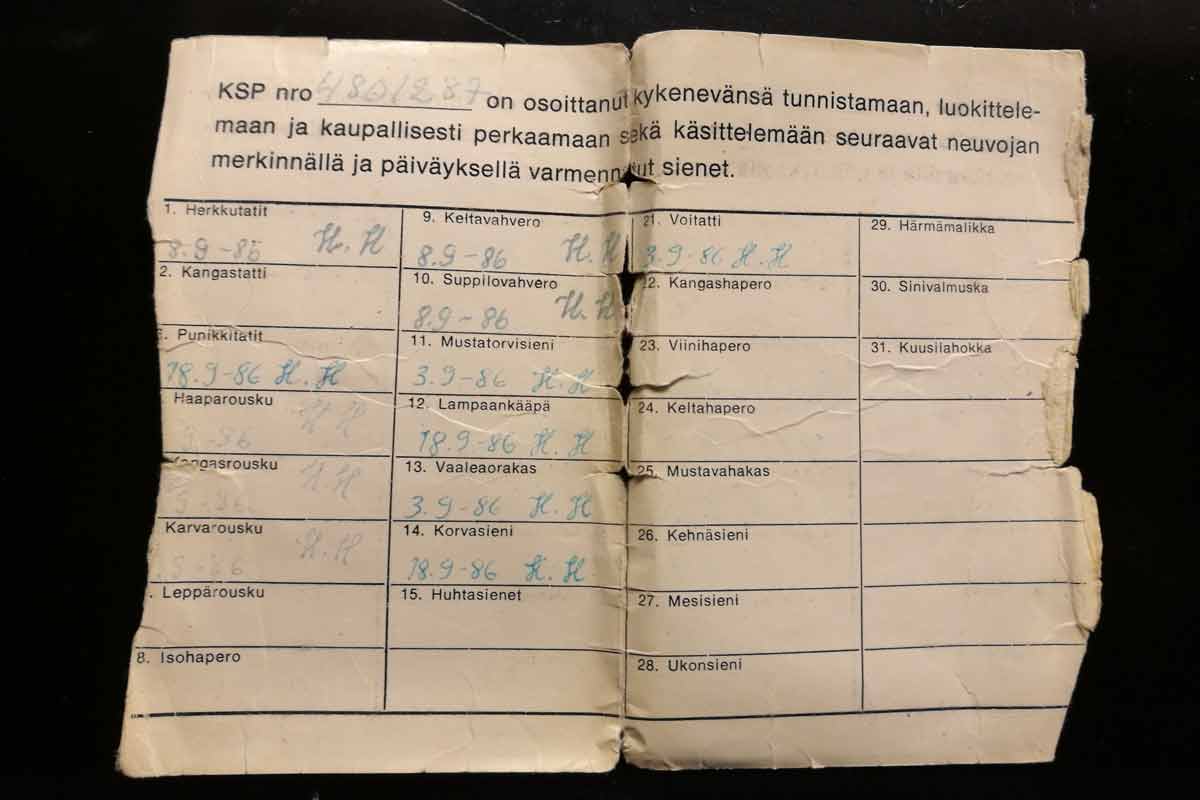 KSP nro 480/287 on osoittanut kykenevänsä tunnistamaan, luokittele-
maan ja kaupallisesti perkaamaan sekä käsittelemään seuraavat neuvojan
merkinnällä ja päiväyksellä varmennetut sienet.
1. Herkkutatit
8.9-86 H.H
2. Kangastatti
Punikkitatit
18.9-86 H.H
Haaparousku
H H
-86
Kangasrousku
H H
Karvarousku
H.H
. Leppärousku
8. Isohapero
9. Keltavahvero
8.9-86 H.H
10. Suppilovahvero
8.9-86 H.H
11. Mustatorvisieni
3.9-86 H.H
12. Lampaankääpä
18.9-86 H.H
13. Vaaleaorakas
3.9-86 H.H
14. Korvasieni
18.9-86 H.H
15. Huhtasienet
21. Voitatti
3.9-86 H.H
22. Kangashapero
23. Viinihapero
24. Keltahapero
25. Mustavahakas
26. Kehnäsieni
27. Mesisieni
28. Ukonsieni
29. Härmämalikka
30. Sinivalmuska
31. Kuusilahokka